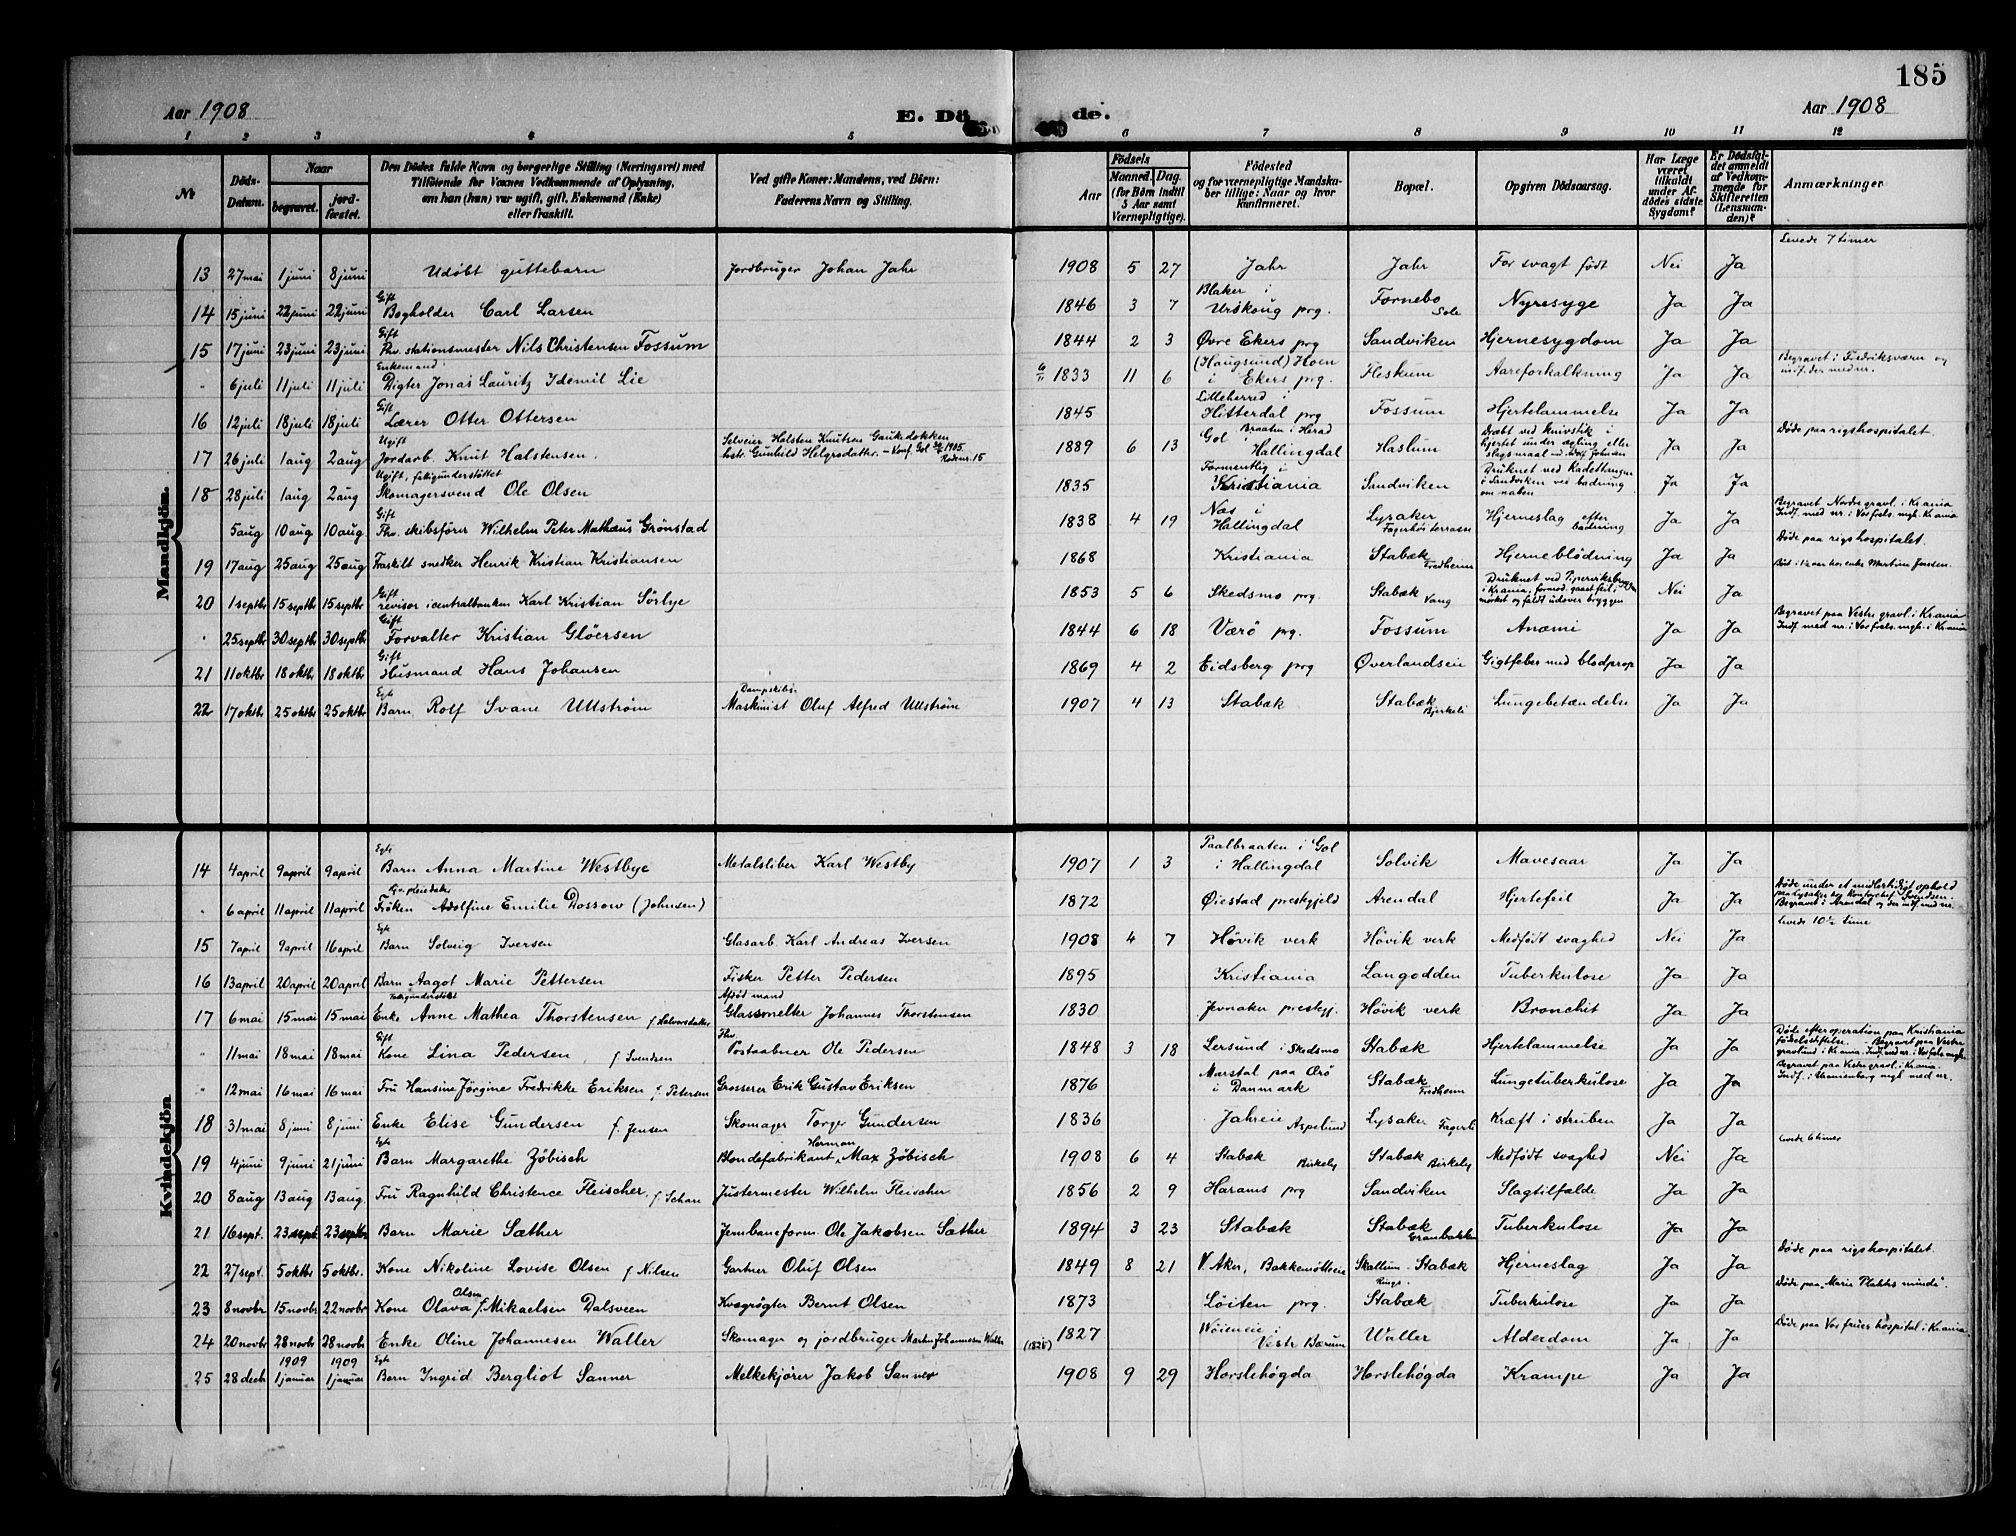 185
Aar 1908 E. Dö de. Aar 1908
1 2 3 4 5 6 7 8 9 10 11 12
№ Døds-Datum. Naar begravet. jordfæstet. Den Dödes fulde Navn og borgerlige Stilling (Næringsvei) med Tilföiende for Voxnes Vedkommende af Oplysning, om han (hun) var ugift, gift, Enkemand (Enke) eller fraskilt. Ved gifte Koner: Mandens, ved Börn: Faderens Navn og Stilling. Aar Födsels Maaned. Dag (for Børn indtil 5 Aar samt Værnepligtige). Födested og for værnepligtige Mandskaber tillige: Naar og hvor konfirmeret. Bopæl. Opgiven Dödsaarsag. Har Læge været tilkaldt under Afdödes sidste Sygdom? Er Dödsfaldet anmeldt af Vedkommende for Skifteretten (Lensmanden)? Anmærkninger
Mandkjön.
13 27 mai 1 juni 8 juni Udøbt guttebarn Jordbruger Johan Jahr 1908 5 27 Jahr Jahr For svagt født Nei Ja Levede 7 timer
14 15 juni 22 juni 22 juni Gift Bogholder Carl Larsen 1846 3 7 Blaker i Urskoug prg. Fornebo Sole Nyresyge Ja Ja
15 17 juni 23 juni 23 juni Gift Fhv. stationsmester Nils Christensen Fossum 1844 2 3 Øvre Ekers prg Sandviken Hjernesygdom Ja Ja
" 6 juli 11 juli 11 juli Enkemand Digter Jonas Lauritz Idemil Lie 6/11 1833 11 6 (Haugsund) Hoen i Ekers prg. Fleskum Aareforkalkning Ja Ja Begravet i Fredriksværn og indf. der med nr.
16 12 juli 18 juli 18 juli Gift Lærer Otter Ottersen 1845 Lilleherred i Hitterdal prg Fossum Hjertelammelse Ja Ja
17 26 juli 1 aug 2 aug Ugift Jordarb. Knut Halstensen. Selveier Halsten Knutsen Gaukedokken hstr. Gunhild Helgesdatter. - Konf. Gol 1905. Rodenr. 15 1889 6 13 Braaten i Herad Gol i Hallingdal Haslum Dræbt ved knivstik i hjertet under ægling eller slagsmaal med Johnsen Ja Ja Døde paa rigshospitalet.
18 28 juli 1 aug 2 aug Ugift, fattigunderstøttet Skomagersvend Ole Olsen 1835 Formentlig i Kristiania Sandviken Druknet ved Kadettangen i Sandviken ved badning om natten Ja Ja
5 aug 10 aug 10 aug Gift Fhv. skibsfører Wilhelm Peter Mathæus Grønstad 1838 4 19 Næs i Hallingdal Lysaker Fagerhøi terrasse Hjerneslag efter badning Ja Ja Begravet Nordre gravl. i Krania Indf. med nr. i Vor frels. mgh. Krania
19 17 aug 25 aug 25 aug Fraskilt snedker Henrik Kristian Kristiansen 1868 Kristiania Stabæk Fredheim Hjerneblödning Ja Ja Døde paa rigshospitalet. Bod i 1½ aar hos enke Martine Jensen.
20 1 septbr 15 septbr 15 septbr Gift revisor i centralbanken Karl Kristian Sörbye 1853 5 6 Skedsmo prg. Stabæk Vang Druknet ved Pipervikabryggen i Krania, formod. gaaet feil i mørket og faldt udover bryggen Nei Ja
" 25 septbr 30 septbr 30 septbr Gift Forvalter Kristian Gløersen 1844 6 18 Værø prg. Fossum Anæmi Ja Ja Begravet paa Vestre gravl. i Krania Indf. med nr. i Vor frels. mgh. i Krania
21 11 oktbr 18 oktbr 18 oktbr Gift Husmand Hans Johansen 1869 4 2 Eidsberg prg Øverlandseie Gigtfeber med blodprop Ja Ja
22 17 oktbr 25 oktbr 25 oktbr Egte Barn Rolf Svane Ullstrøm Dampskibs. Maskinist Oluf Alfred Ullstrøm 1907 4 13 Stabæk Stabæk Bjerkeli Lungebetændelse Ja Ja
Kvindekjön
14 4 april 9 april 9 april Egte Barn Anna Martine Westbye Metalsliber Karl Westby 1907 1 3 Paalbraaten i Gol i Hallingdal Solvik Mavesaar Ja Ja
" 6 april 11 april 11 april Gv. pleiedatter Frøken Adolfine Emilie Dossow (Johnsen) 1872 Øiestad preskgjeld Arendal Hjertefeil Ja Ja Døde under et midlertidigt ophold paa Lysaker hos Kontorchef Svendsen. Begravet i Arendal og der indf. med nr.
15 7 april 9 april 16 april Egte Barn Solveig Iversen Glasarb Karl Andreas Iversen 1908 4 7 Høvik verk Høvik verk Medfødt svaghed Nei Ja Levede 10½ time
16 13 april 20 april 20 april Barn Aagot Marie Pettersen Fisker Petter Pedersen 1895 Kristiania Langodden Tuberkulose Ja Ja
17 6 mai 15 mai 15 mai Fattigunderstøttet Enke Anne Mathea Thorstensen f. Halvorsdatter Afdød mand Glassmelter Johannes Thorstensen 1830 Jevnaker preskgj. Høvik verk Bronchit Ja Ja
" 11 mai 18 mai 18 mai Gift Kone Lina Pedersen, f. Svendsen Fhv Postaabner Ole Pedersen 1848 3 18 Lersund i Skedsmo Stabæk Hjertelammelse Ja Ja Døde efter operation paa Kristiania fødselsstiftelse. - Begravet paa Vestre gravlund i Krania. Indf. med nr. i Vor frels. mgh.
" 12 mai 16 mai 16 mai Fru Hansine Jörgine Fredrikke Eriksen f. Petersen Grosserer Erik Gustav Eriksen 1876 Marstal paa Ærø i Danmark Stabæk Fredheim Lungetuberkulose Ja Ja Begravet paa Vestre gravl. i Krania. Indf. i Uranienborg mgh med nr.
18 31 mai 8 juni 8 juni Enke Elise Gundersen f. Jensen Skomager Torger Gundersen 1836 Jahreie Aspelund Lysaker Fagerli Kræft i struben Ja Ja
19 4 juni 9 juni 21 juni Egte Barn Margarethe Zöbisch Blondefabrikant Herman Max Zöbisch 1908 6 4 Stabæk Birkely Stabæk Birkely Medfødt svaghed Nei Ja Levede 6 timer
20 8 aug 13 aug 13 aug. Fru Ragnhild Christence Fleischer, f. Schan Justermester Wilhelm Fleischer 1856 2 9 Harams prg Sandviken Slagtilfælde Ja Ja
21 16 sept. 23 sept. 23 septbr Barn Marie Sæther Jernbaneform. Ole Jakobsen Sæther 1894 3 23 Stabæk Stabæk Granbakken Tuberkulose Ja Ja
22 27 sept. 5 oktbr 5 oktbr. Kone Nikoline Lovise Olsen f. Nilsen Gartner Oluf Olsen 1849 8 21 V. Aker, Bakkemølleeie Skallum. Stabæk Hjerneslag Ja Ja Døde paa rigshospitalet.
23 8 novbr 15 novbr 22 novbr Kone Olava Olsen f. Mikaelsen Dalsveen Kvægrøgter Bernt Olsen 1873 Løiten prg. Rings. Stabæk Tuberkulose Ja Ja Døde paa "Maria Plahtes minde".
24 20 novbr 28 novbr 28 novbr Enke Oline Johannesen Waller Skomager og jordbruger Martin Johannesen Waller (1828) 1827 Wøieneie i Vestr Bærum Waller Alderdom Ja Ja Døde paa Vor frues hospital i Krania
25 28 decb 1909 1 januar 1909 1 januar Egte Barn Ingrid Bergliot Sanner Melkekjører Jakob Sanner 1908 9 29 Horslehøgda Horslehøgda Krampe Ja Ja